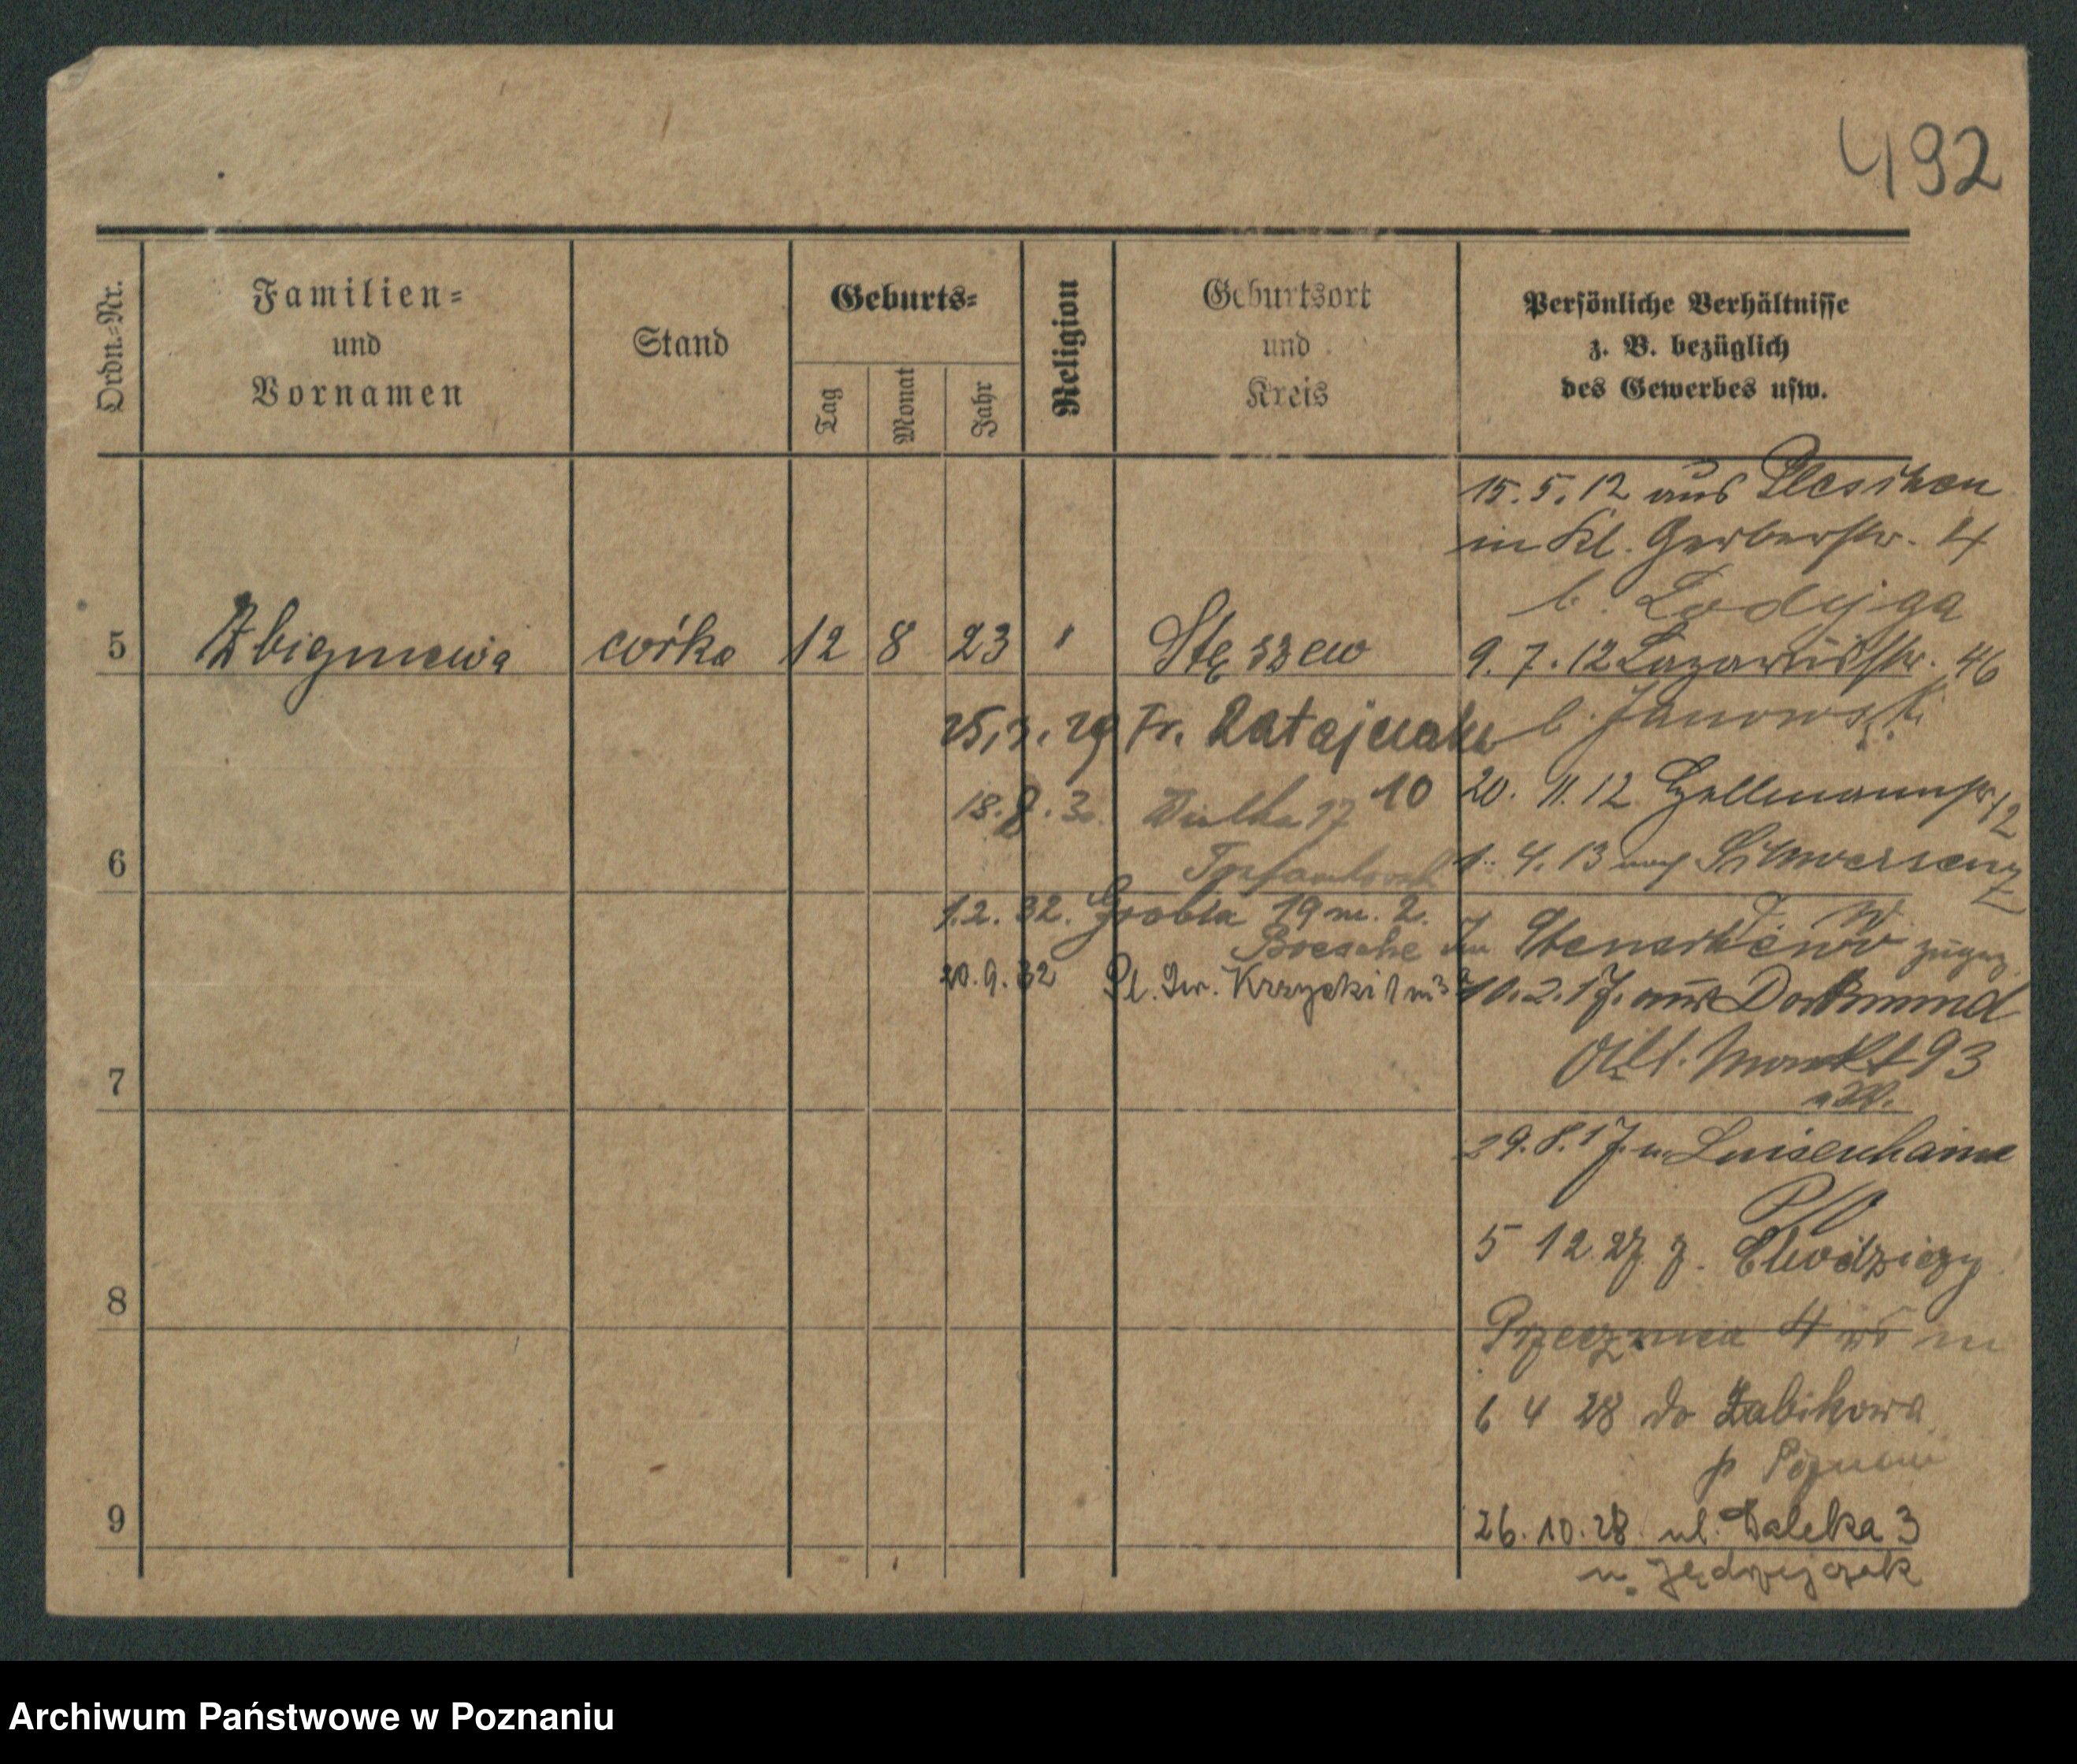 492
Ordn.=Nr.
Familien=
und
Vornamen
Stand
Geburts=
Tag
Monat
Jahr
Religion
Geburtsort
und
Kreis
Persönliche Verhältnisse
z. B. bezüglich
des Gewerbes usw.
15.5.12 aus Pleschen
in Kl. Gerberstr. 4
b. Lodyga
5 Zbigniewa córka 12 8 23 " Stęszew
9.7.12 Lazarusstr. 46
b. Janowski
25.3.29 Fr. Ratajczaka
10
20. 11. 12
18.8.30. Wielka 17
6
1. 4. 13 nach Schwersenz
1.2.32. Grobla 19 m. 2.
zugez.
20.9.32 Pl. Krzycki 1 m
10.2.17. aus Dortmund
Alt. Markt 93
7
29.8.17. n. Luisenhain
5 12 27 z. Chodzieży
8
Przecznica 4
6 4 28 do Żabikowa
p Poznań
9
26.10.28 ul. Daleka 3
u. Jędrzejczak
Archiwum Państwowe w Poznaniu